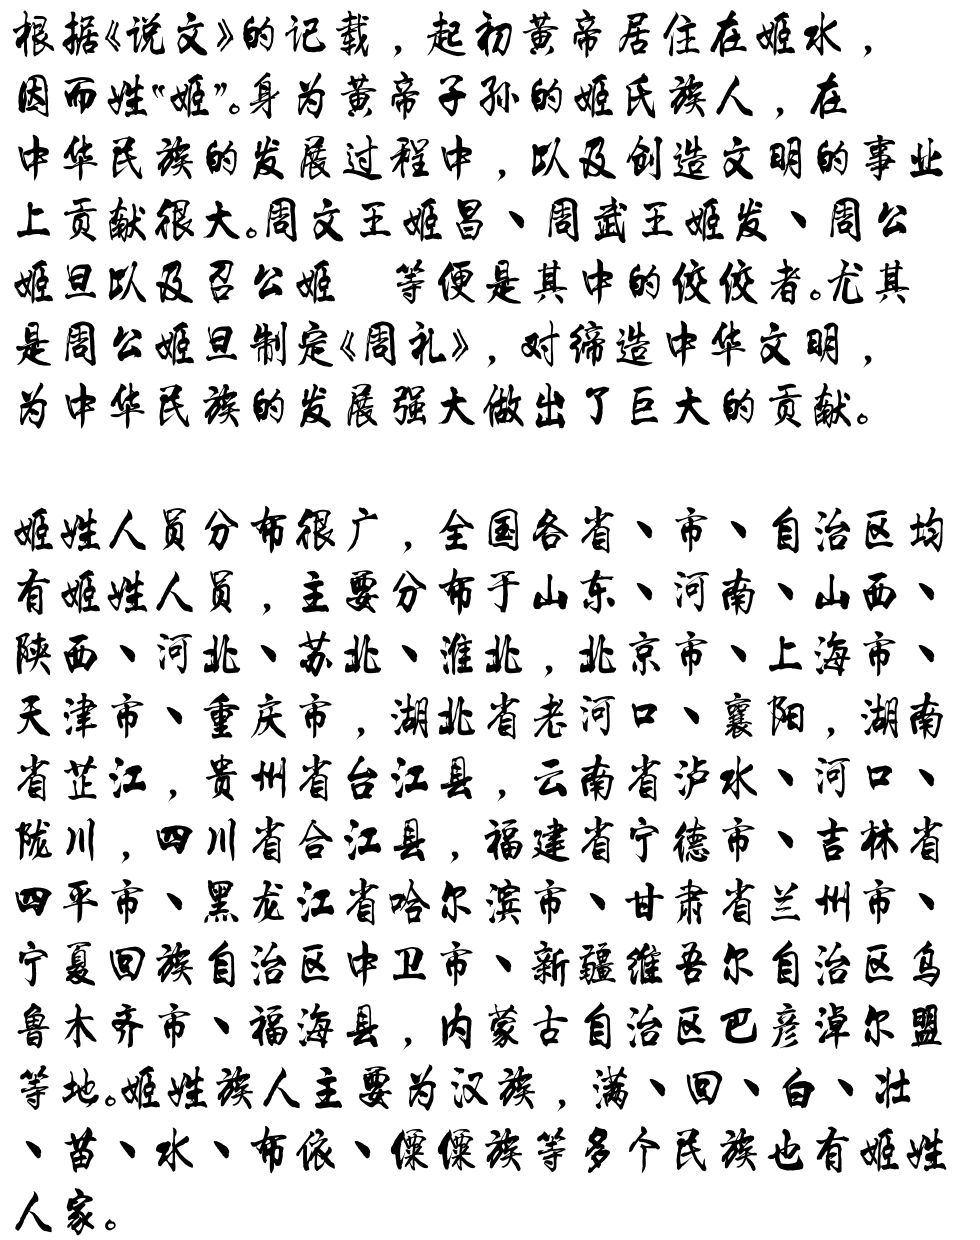 根据《说文》的记载，起初黄帝居住在姬水，
因而姓“姬”。身为黄帝子孙的姬氏族人，在
中华民族的发展过程中，以及创造文明的事业
上贡献很大。周文王姬昌、周武王姬发、周公
姬旦以及召公姬　等便是其中的佼佼者。尤其
是周公姬旦制定《周礼》，对缔造中华文明，
为中华民族的发展强大做出了巨大的贡献。
姬姓人员分布很广，全国各省、市、自治区均
有姬姓人员，主要分布于山东、河南、山西、
陕西、河北、苏北、淮北，北京市、上海市、
天津市、重庆市，湖北省老河口、襄阳，湖南
省芷江，贵州省台江县，云南省泸水、河口、
陇川，四川省合江县，福建省宁德市、吉林省
四平市、黑龙江省哈尔滨市、甘肃省兰州市、
宁夏回族自治区中卫市、新疆维吾尔自治区乌
鲁木齐市、福海县，内蒙古自治区巴彦淖尔盟
等地。姬姓族人主要为汉族，满、回、白、壮
、苗、水、布依、傈僳族等多个民族也有姬姓
人家。